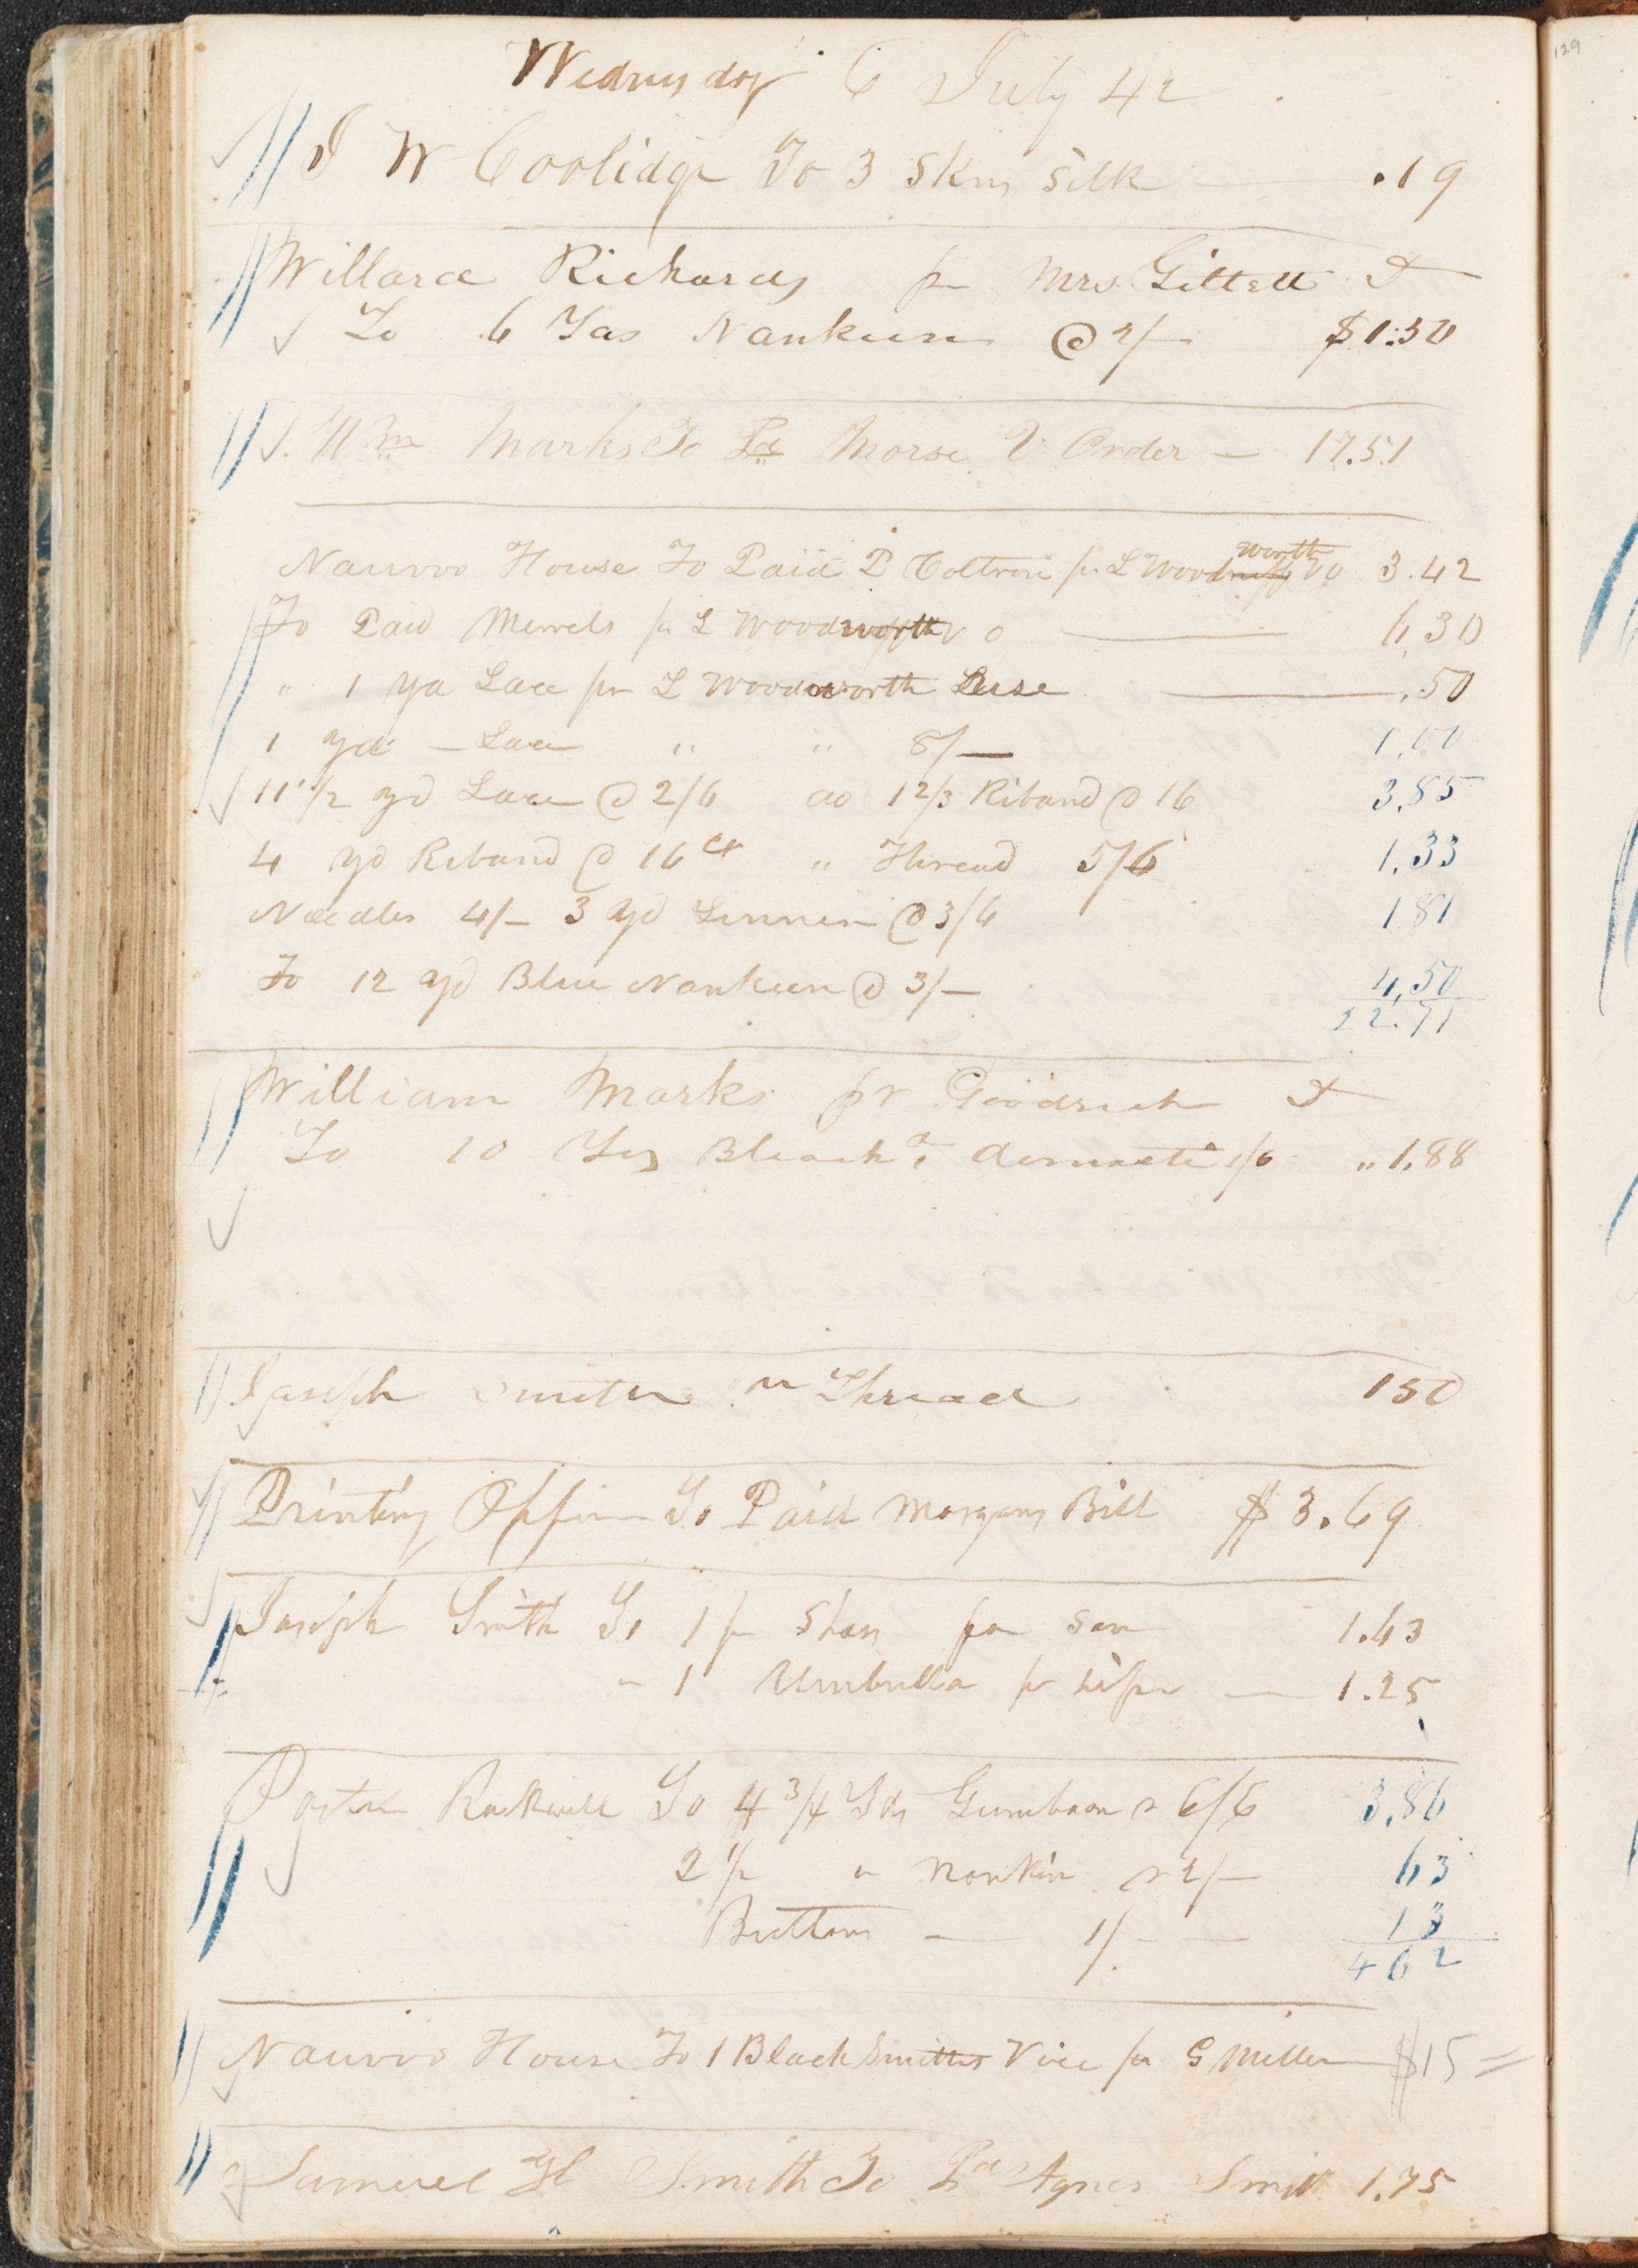 129
Wednesday 6 July 42
J W Coolidge To 3 Skns Silk — .19
Willard Richards pr Mrs Gillett Dr
To 6 Yds Nankeen @ 2/- $1.50
Wm Marks To Pd Morse V Order — 17.51
worth
Nauvoo House To Paid P Coltron pr L Woodruff VO 3.42
To Paid Merrels pr L Woodworth V O — 6.30
" 1 yd Lace pr L Woodworth — .50
1 yd — Lace " " 8/— 1.00
11 1/2 yd Lace @ 2/6 do 1 2/3 Riband @ 16 3.85
4 yd Riband @ 16 ct " Thread 5/6 1.33
Needles 4/- 3 yd Linnen @ 3/6 1.81
To 12 yd Blue Nankeen @ 3/— 4.50
22.71
William Marks pr Goodrich Dr
To 10 Yds Bleachd domestic 1/6 " 1.88
Joseph Smith " Thread 150
Printing Office To Paid Morgans Bill $3.69
Joseph Smith To 1 pr Shoes for Son 1.63
" 1 Umbrella pr wife — 1.25
Porter Rockwell To 4 3/4 Yds Gambroon @ 6/6 3.86
2 1/2 " Nankin @ 2/— 63
Buttons — 1/- — 13
4 62
Nauvoo House To 1 Black Smiths Vice pr G Miller — $15=
Samuel H Smith To Pd Agnes Smith 1.75